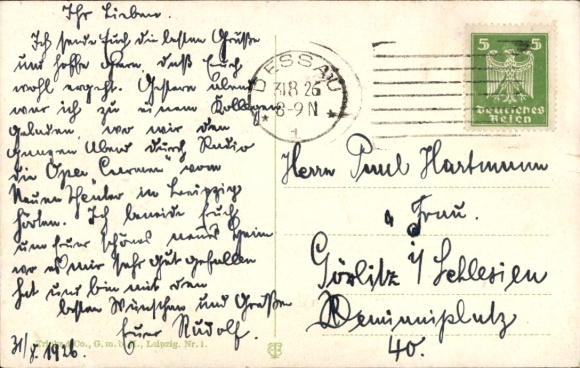 Ihr Lieben.
Ich sende Euch die besten Grüße
und hoffe gern, daß Euch
wohl ergeht. Gestern Abend
war ich zu einem Kollegen
geladen, wo wir den
ganzen Abend durch Radio
die Oper "Carmen" vom
Neuen Theater in Leipzig
hörten. Ich beneide Euch
um Euer schönes neues Heim
wo es mir sehr gut gefallen
hat und bin mit den
besten Wünschen und Grüßen
Euer Rudolf.
31/8. 1926.
Co., G. m. b. H., Leipzig. Nr. 1.
DESSAU
31.8.26
8-9 N
1
5 5
Deutsches
Reich
Herrn Paul Hartmann
u. Frau.
Görlitz i/Schlesien
40.